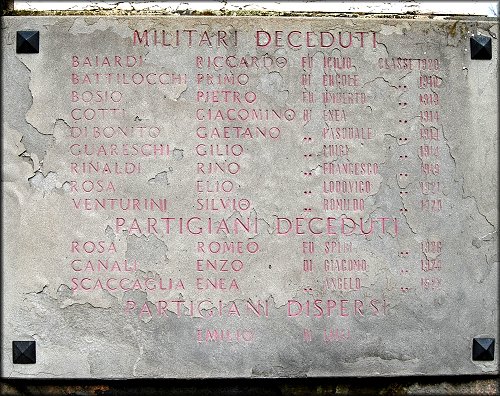 MILITARI DECEDUTI
BAIARDI RICCARDO FU ICILIO CLASSE 1920
BATTILOCCHI PRIMO DI ERCOLE „
BOSIO PIETRO FU UMBERTO „ 1919
COTTI GIACOMINO DI ENEA „ 1914
DIBONITO GAETANO „ PASQUALE „
GUARESCHI GILIO „ LUIGI „
RINALDI RINO „ FRANCESCO „ 1919
ROSA ELIO „ LODOVICO „ 1921
VENTURINI SILVIO „ ROMILDO „
PARTIGIANI DECEDUTI
ROSA ROMEO FU „ 1926
CANALI ENZO DI GIACOMO „ 1924
SCACCAGLIA ENEA „ ANGELO „
PARTIGIANI DISPERSI
EMILIO DI